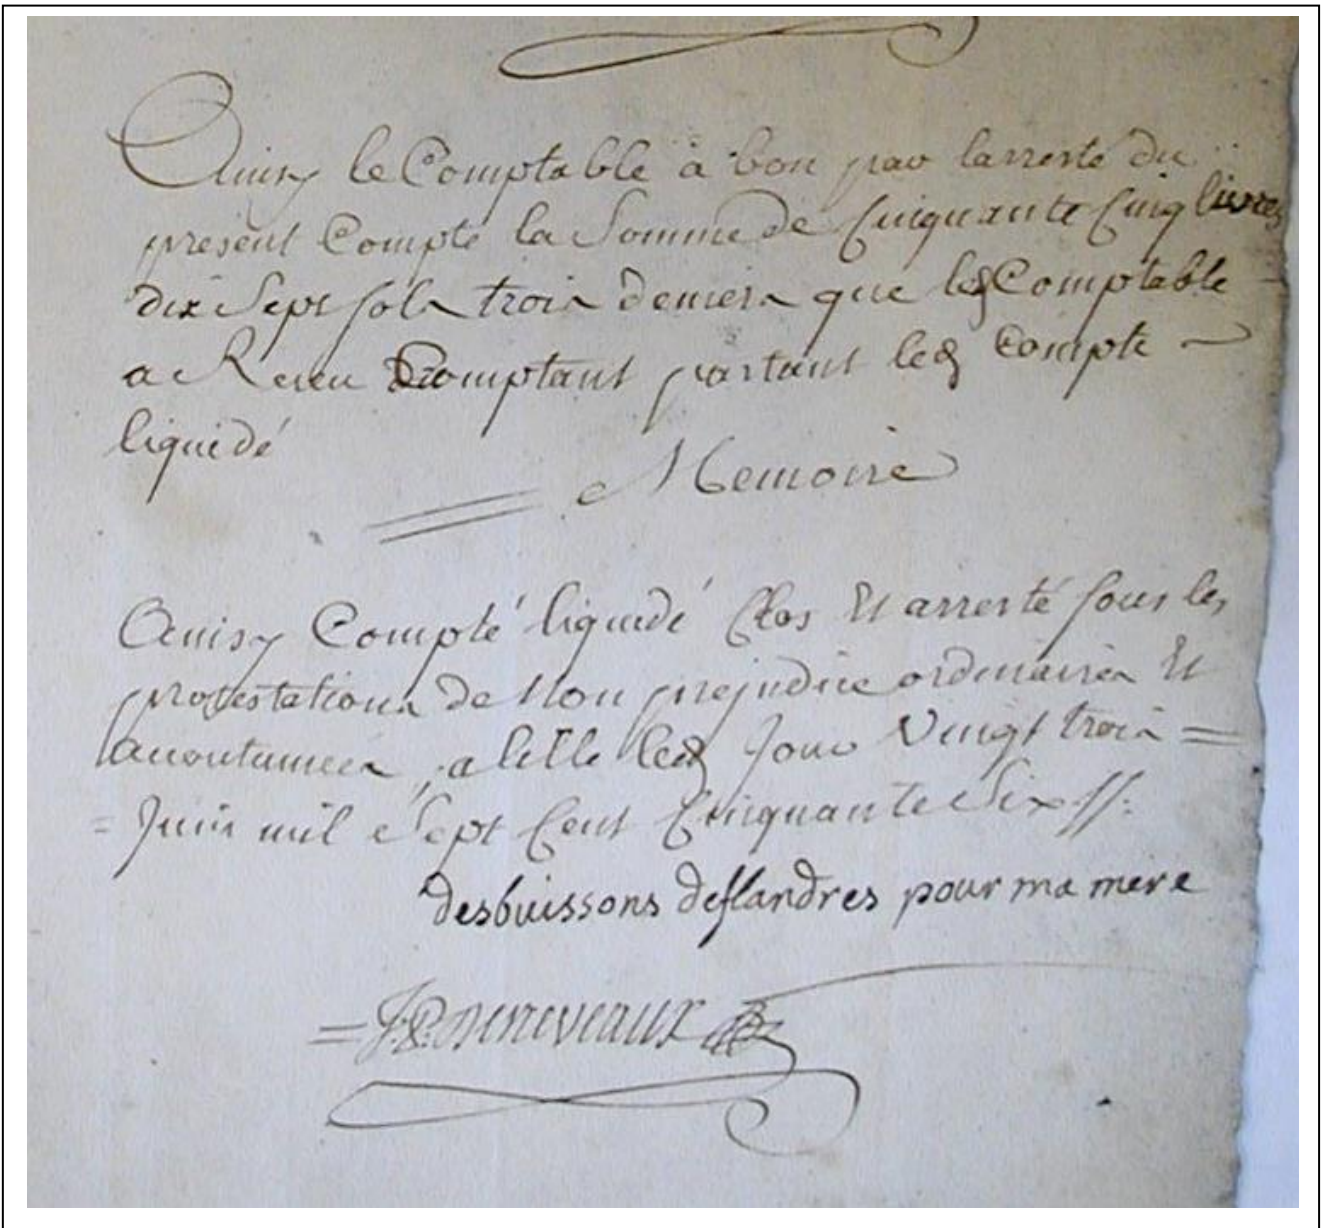 Ainsy le Comptable à bon par larresté du
présent Compte la Somme de Cinquante Cinq livres
dix Sept sols trois deniers que led Comptable
a Receu Comptant partant led Compte
liquidé
Memoire
Ainsy Compté liquidé Clos Et arresté sous les
protestations de Non prejudice ordinaires Et
accoutumées, a Lille led Jour Vingt trois =
= Juin mil Sept Cent Cinquante Six //:
desbuissons deflandres pour ma mere